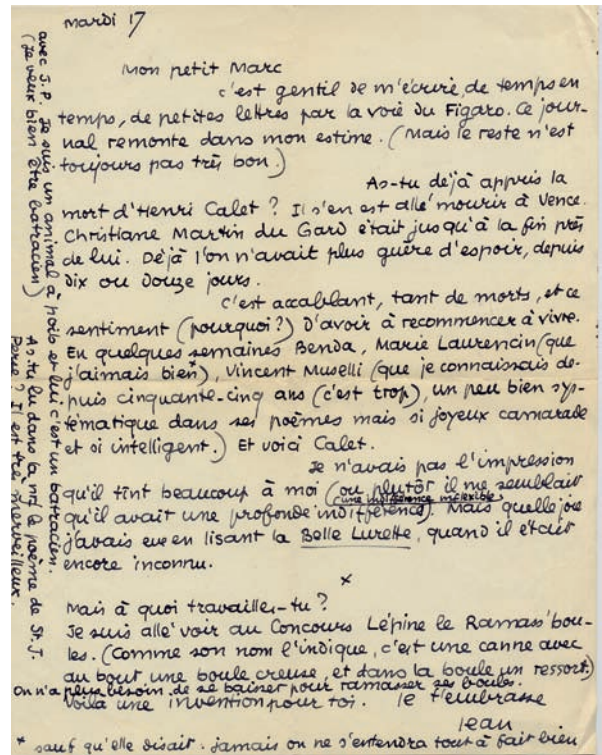 mardi 17
Mon petit Marc
c'est gentil de m'écrire, de temps en
temps, de petites lettres par la voie du Figaro. Ce jour-
nal remonte dans mon estime. (Mais le reste n'est
toujours pas très bon.)
As-tu déjà appris la
mort d'Henri Calet ? Il s'en est allé mourir à Vence.
Christiane Martin du Gard était jusqu'à la fin près
de lui. Déjà l'on n'avait plus guère d'espoir, depuis
dix ou douze jours.
C'est accablant, tant de morts, et ce
sentiment (pourquoi ?) d'avoir à recommencer à vivre.
En quelques semaines Benda, Marie Laurencin (que
j'aimais bien), Vincent Muselli (que je connaissais de-
puis cinquante-cinq ans (c'est trop), un peu bien sys-
tématique dans ses poèmes mais si joyeux camarade
et si intelligent.) Et voici Calet.
Je n'avais pas l'impression
qu'il tînt beaucoup à moi (ou plutôt il me semblait
une indifférence inflexible
qu'il avait une profonde indifférence). Mais quelle joie
j'avais eue en lisant la Belle Lurette, quand il était
encore inconnu.
×
Mais à quoi travailles-tu ?
Je suis allé voir au Concours Lépine le Ramass'bou-
les. (Comme son nom l'indique, c'est une canne avec
au bout une boule creuse, et dans la boule un ressort.)
On n'a plus besoin de se baisser pour ramasser ses boules.
Voilà une invention pour toi. Je t'embrasse
Jean
* sauf qu'elle disait : jamais on ne s'entendra tout à fait bien
avec J.P. Je suis un animal à poils et lui c'est un batracien.
(Je veux bien être batracien)
As-tu lu dans la nrf le poème de St. J.
Perse ? Il est très merveilleux.